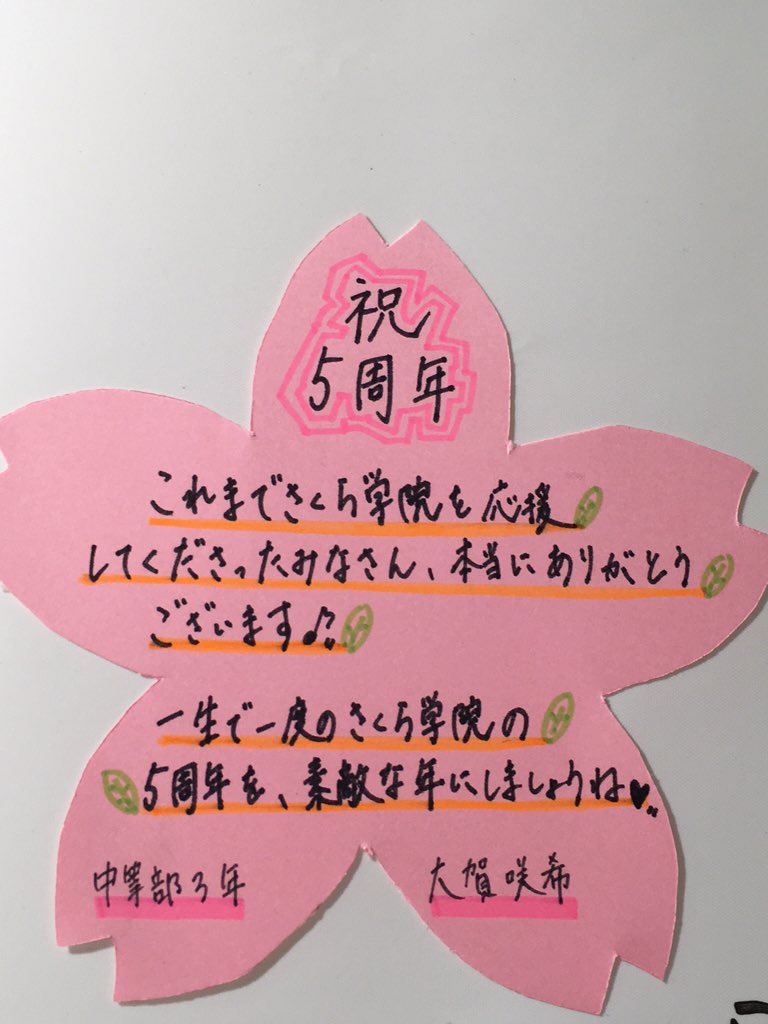 祝
5周年
これまでさくら学院を応援
してくださったみなさん、本当にありがとう
ございます♪
一生で一度のさくら学院の
5周年を、素敵な年にしましょうね♥
中等部3年
大賀咲希